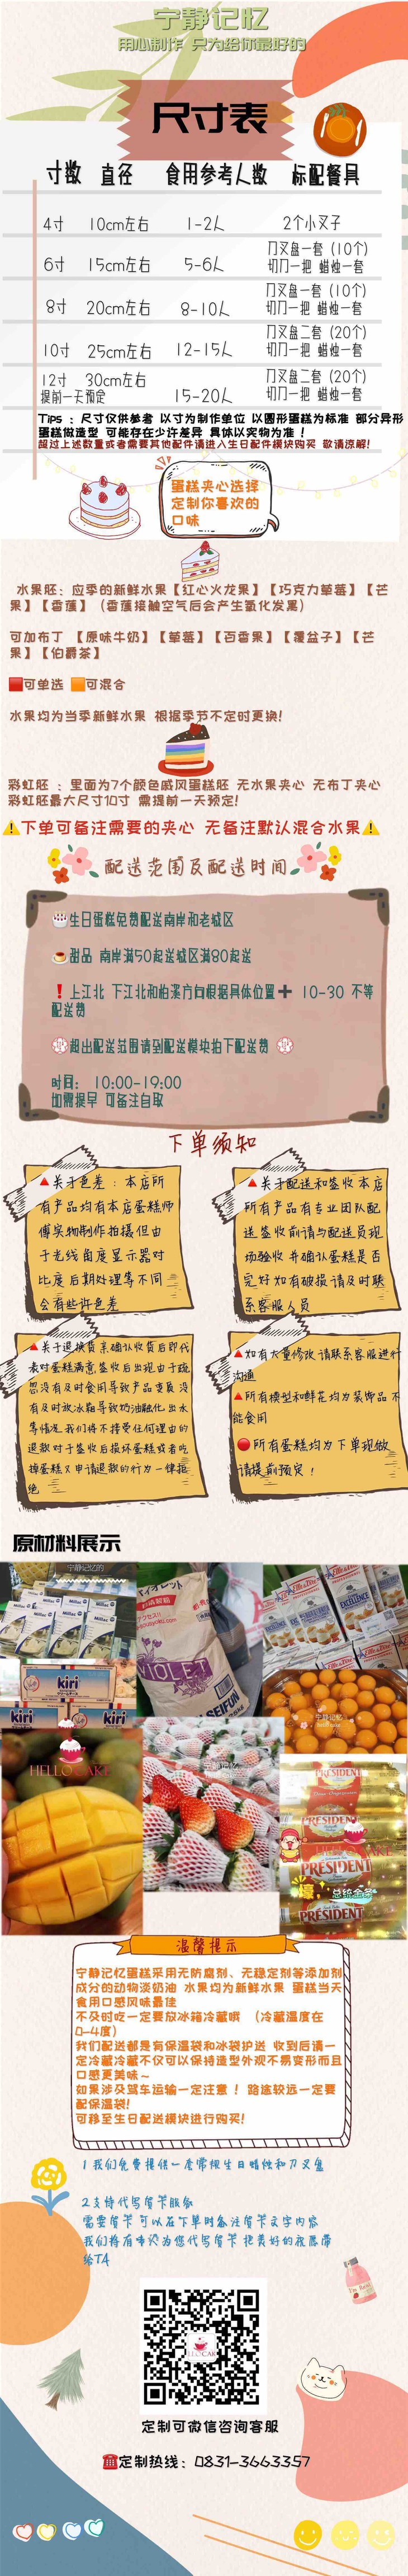 宁静记忆
用心制作 只为给你最好的
尺寸表
寸数 直径 食用参考人数 标配餐具
4寸 10cm左右 1-2人 2个小叉子
6寸 15cm左右 5-6人 刀叉盘一套（10个）
切刀一把 蜡烛一套
8寸 20cm左右 8-10人 刀叉盘一套（10个）
切刀一把 蜡烛一套
10寸 25cm左右 12-15人 刀叉盘二套（20个）
切刀一把 蜡烛一套
12寸 30cm左右 15-20人 刀叉盘二套（20个）
提前一天预定 切刀一把 蜡烛一套
Tips：尺寸仅供参考 以寸为制作单位 以圆形蛋糕为标准 部分异形
蛋糕做造型 可能存在少许差异 具体以实物为准！
超过上述数量或者需要其他配件请进入生日配件模块购买 敬请谅解!
蛋糕夹心选择
定制你喜欢的
口味
水果胚：应季的新鲜水果【红心火龙果】【巧克力草莓】【芒
果】【香蕉】（香蕉接触空气后会产生氧化发黑）
可加布丁 【原味牛奶】【草莓】【百香果】【覆盆子】【芒
果】【伯爵茶】
🟥可单选 🟧可混合
水果均为当季新鲜水果 根据季节不定时更换!
彩虹胚 ：里面为7个颜色戚风蛋糕胚 无水果夹心 无布丁夹心
彩虹胚最大尺寸10寸 需提前一天预定!
⚠️下单可备注需要的夹心 无备注默认混合水果⚠️
配送范围及配送时间
🎂生日蛋糕免费配送南岸和老城区
🍮甜品 南岸满50起送城区满80起送
❗上江北 下江北和柏溪方向根据具体位置➕ 10-30 不等
配送费
💮超出配送范围请到配送模块拍下配送费 💮
时间： 10:00-19:00
如需提早 可备注自取
下单须知
🔺关于色差：本店所
有产品均有本店蛋糕师
傅实物制作拍摄但由
于光线角度显示器对
比度后期处理等不同
会有些许色差
🔺关于配送和签收本店
所有产品有专业团队配
送签收前请与配送员现
场验收并确认蛋糕是否
完好如有破损请及时联
系客服人员
🔺关于退换货亲确认收货后即代
表对蛋糕满意,签收后出现由于疏
忽没有及时食用导致产品变质没
有及时放冰箱导致奶油融化.出水
等情况.我们将不接受任何理由的
退款对于签收后损坏蛋糕或者吃
掉蛋糕又申请退款的行为一律拒
绝
🔺如有大量修改请联系客服进行
沟通
🔺所有模型和鲜花均为装饰品不
能食用
🔴所有蛋糕均为下单现做
请提前预定！
原材料展示
宁静记忆的
Millac
kiri
kiri
VIOLET
SEIFUN
EXCELLENCE
宁静记忆
HELLO CAKE
PRESIDENT
PRESIDENT
PRESIDENT
PRESIDENT
总统金条
温馨提示
宁静记忆蛋糕采用无防腐剂、无稳定剂等添加剂
成分的动物淡奶油 水果均为新鲜水果 蛋糕当天
食用口感风味最佳
不及时吃一定要放冰箱冷藏哦 （冷藏温度在
0-4度）
我们配送都是有保温袋和冰袋护送 收到后请一
定冷藏冷藏不仅可以保持造型外观不易变形而且
口感更美味~
如果涉及驾车运输一定注意！路途较远一定要
配保温袋!
可移至生日配送模块进行购买!
1 我们免费提供一度常规生日蜡烛和刀叉盘
2.支持代写贺卡服务
需要贺卡 可以在下单时备注贺卡文字内容
我们将有专人为您代写贺卡 把美好的祝愿带
给TA
HELLO CAKE
定制可微信咨询客服
☎️定制热线：0831-3663357